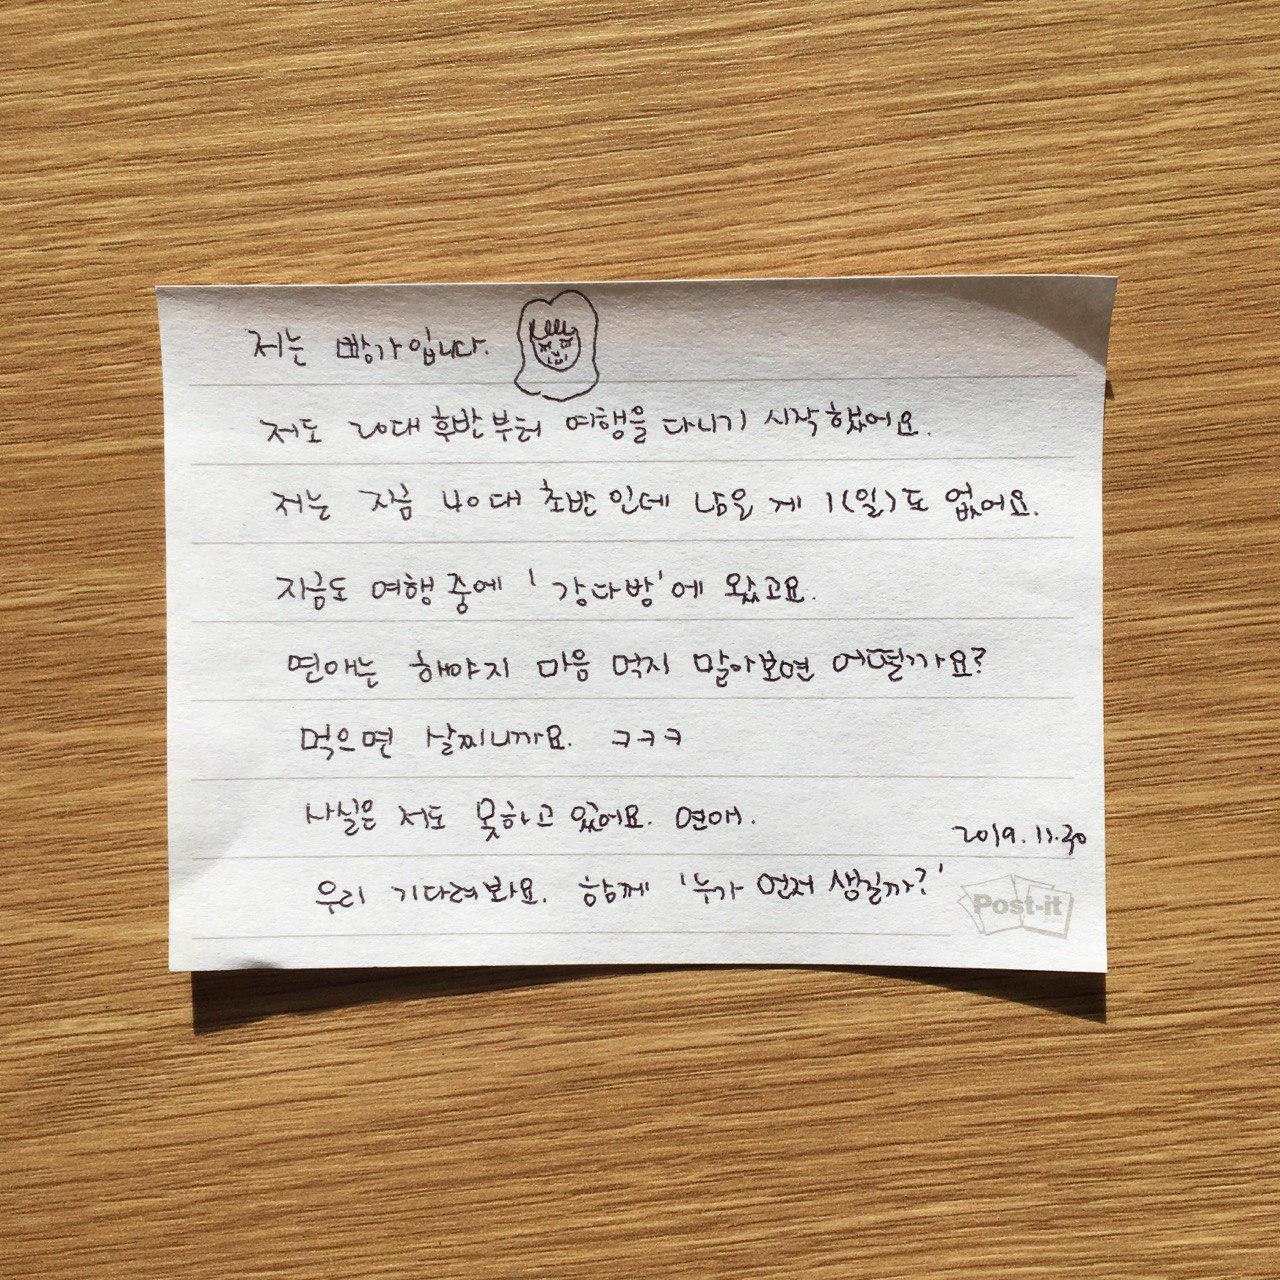 저는 빵가입니다.
저도 20대 후반부터 여행을 다니기 시작했어요.
저는 지금 40대 초반인데 남은 게 1(일)도 없어요.
지금도 여행 중에 '강다방'에 왔고요.
연애는 해야지 마음 먹지 말아보면 어떨까요?
먹으면 살찌니까요. ㅋㅋㅋ
사실은 저도 못하고 있어요. 연애.
2019. 11. 30
우리 기다려봐요. 함께 '누가 먼저 생길까?'
Post-it